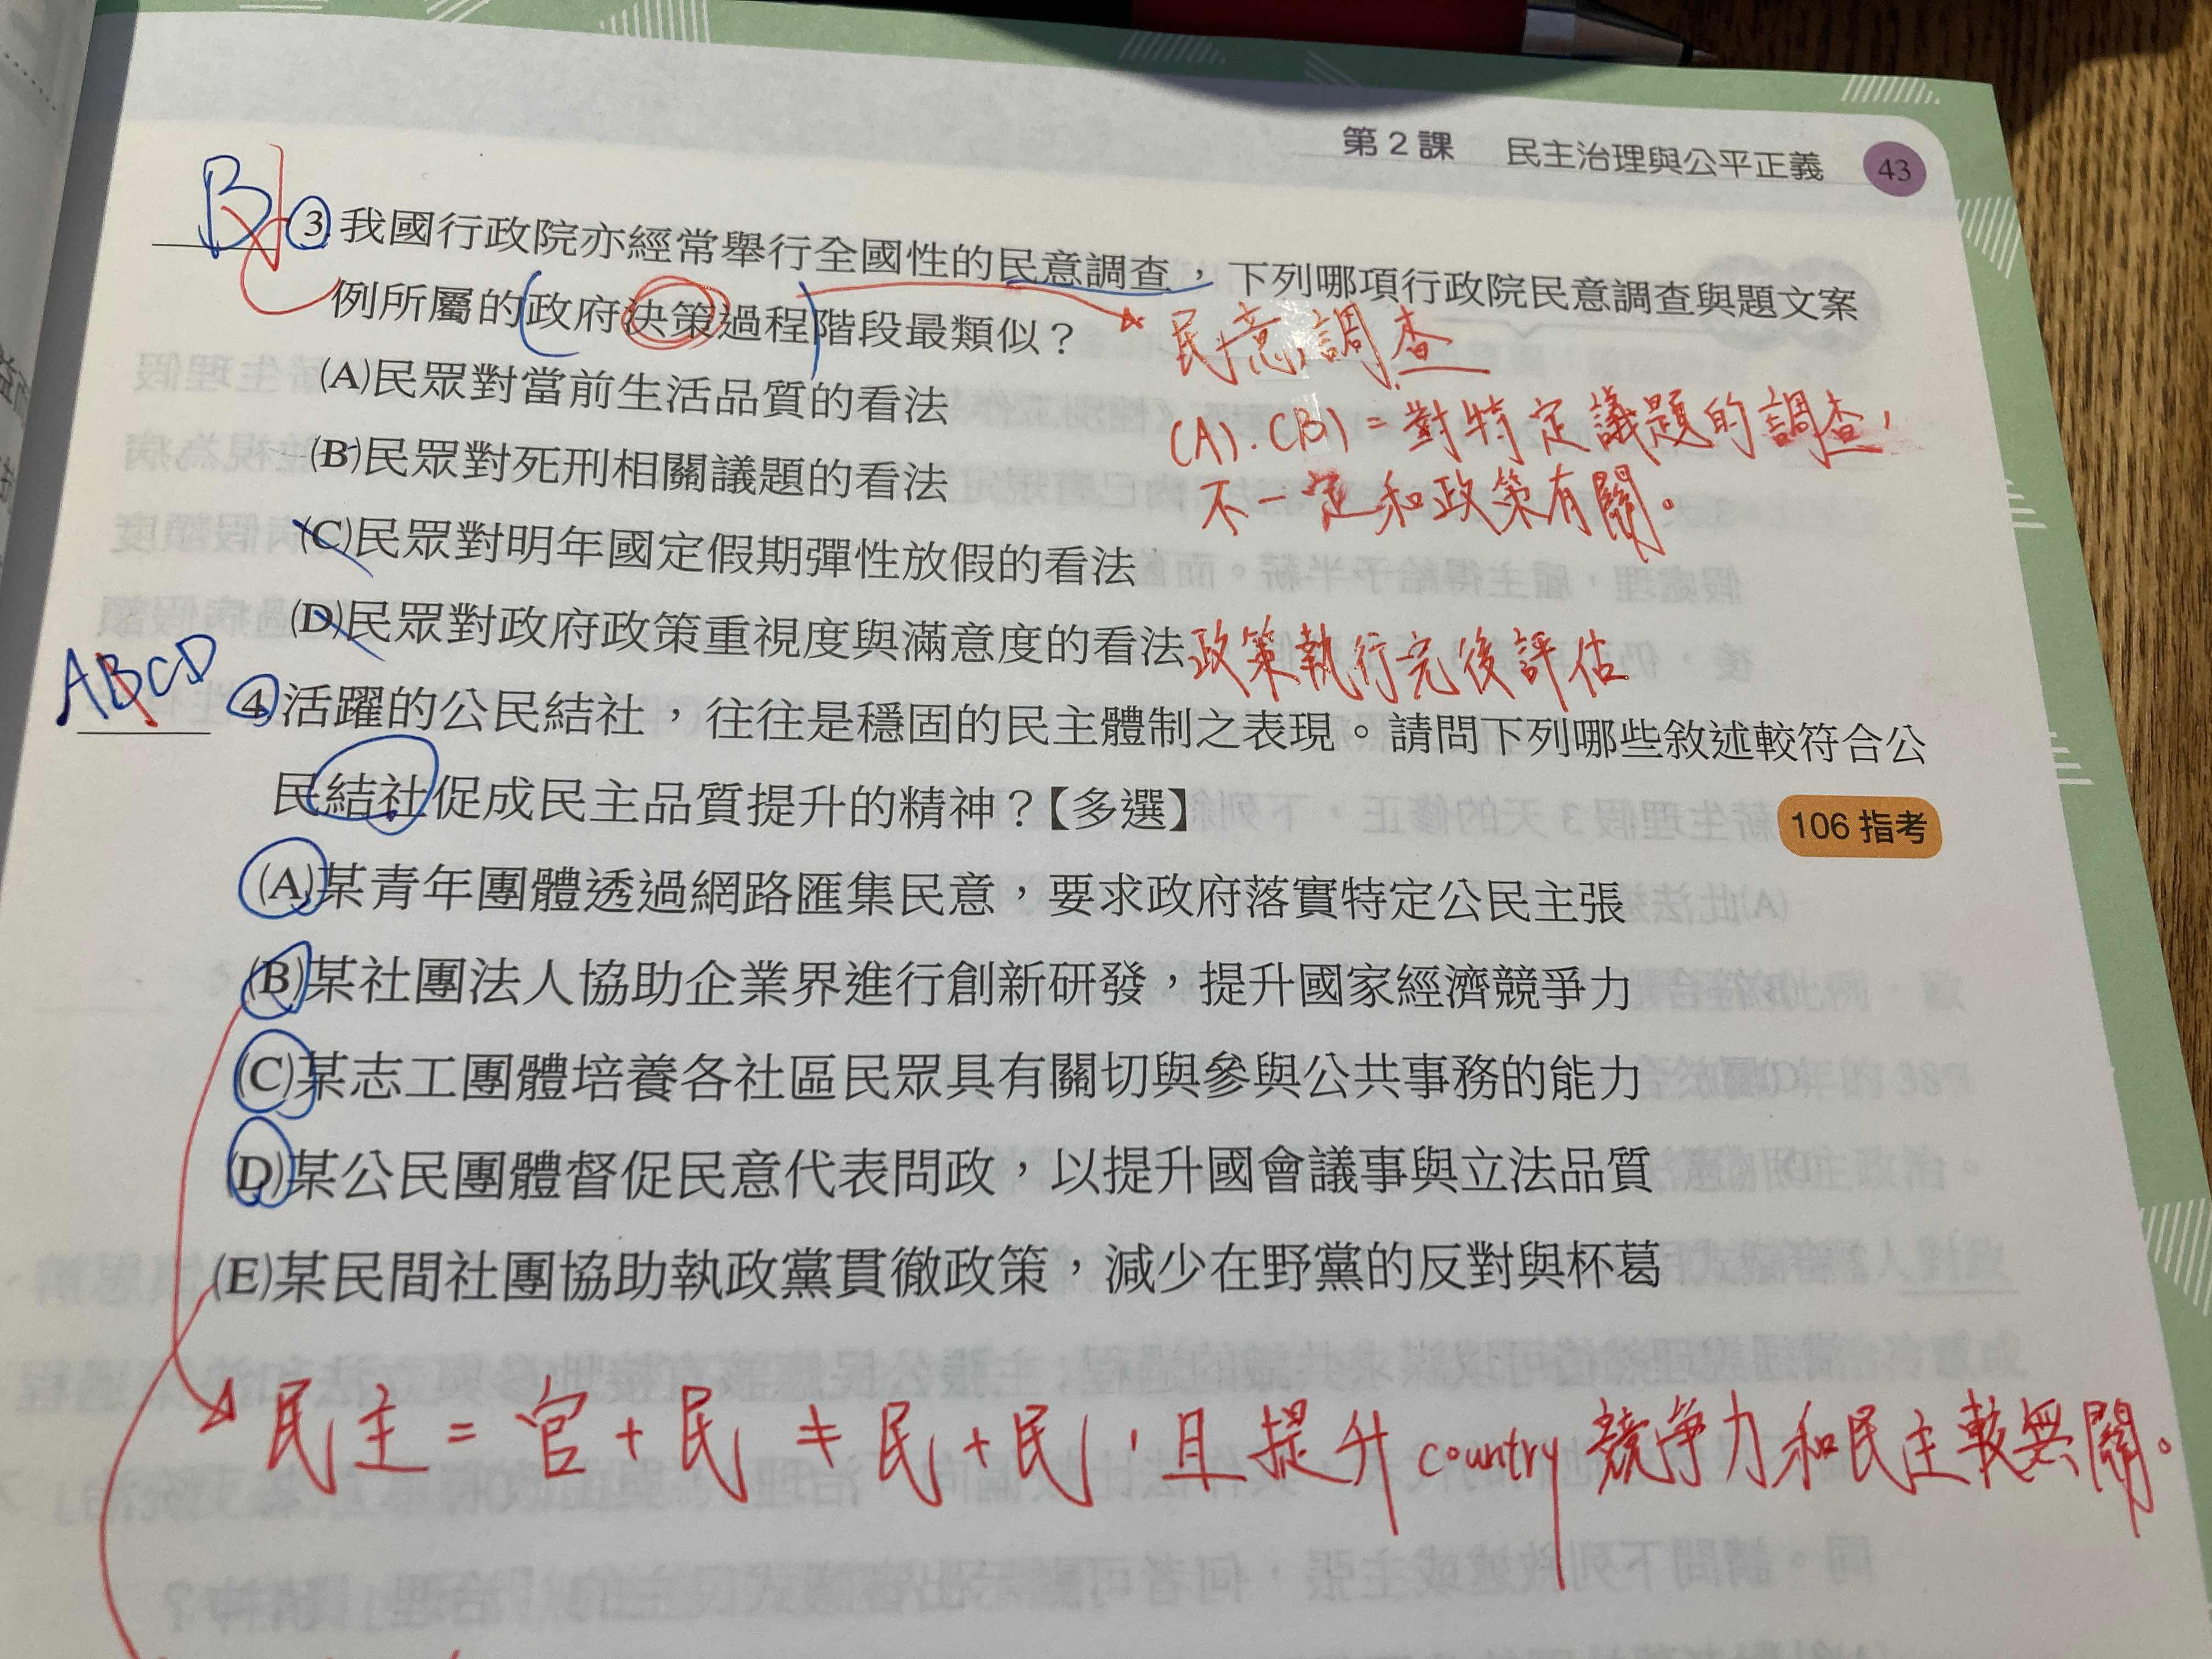 第2課 民主治理與公平正義 43
B 3 我國行政院亦經常舉行全國性的民意調查，下列哪項行政院民意調查與題文案
例所屬的政府決策過程階段最類似？
民意調查
(A)民眾對當前生活品質的看法
(A).(B) = 對特定議題的調查，
(B)民眾對死刑相關議題的看法
不一定和政策有關。
(C)民眾對明年國定假期彈性放假的看法
(D)民眾對政府政策重視度與滿意度的看法 政策執行完後評估
ABCD 4 活躍的公民結社，往往是穩固的民主體制之表現。請問下列哪些敘述較符合公
民結社促成民主品質提升的精神？【多選】
106 指考
(A)某青年團體透過網路匯集民意，要求政府落實特定公民主張
(B)某社團法人協助企業界進行創新研發，提升國家經濟競爭力
(C)某志工團體培養各社區民眾具有關切與參與公共事務的能力
(D)某公民團體督促民意代表問政，以提升國會議事與立法品質
(E)某民間社團協助執政黨貫徹政策，減少在野黨的反對與杯葛
民主 = 官 + 民 ≠ 民 + 民，且提升 country 競爭力和民主較無關。